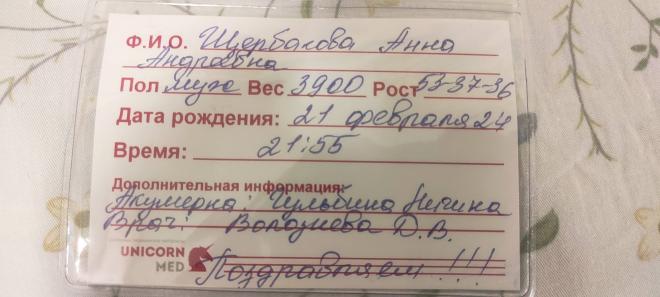 Ф.И.О. Щербакова Анна
Андреевна
Пол муж Вес 3900 Рост 53-37-36
Дата рождения: 21 февраля 24
Время: 21:55
Дополнительная информация:
Акушерка:
Врач: Д.В.
UNICORN
MED
Поздравляем!!!